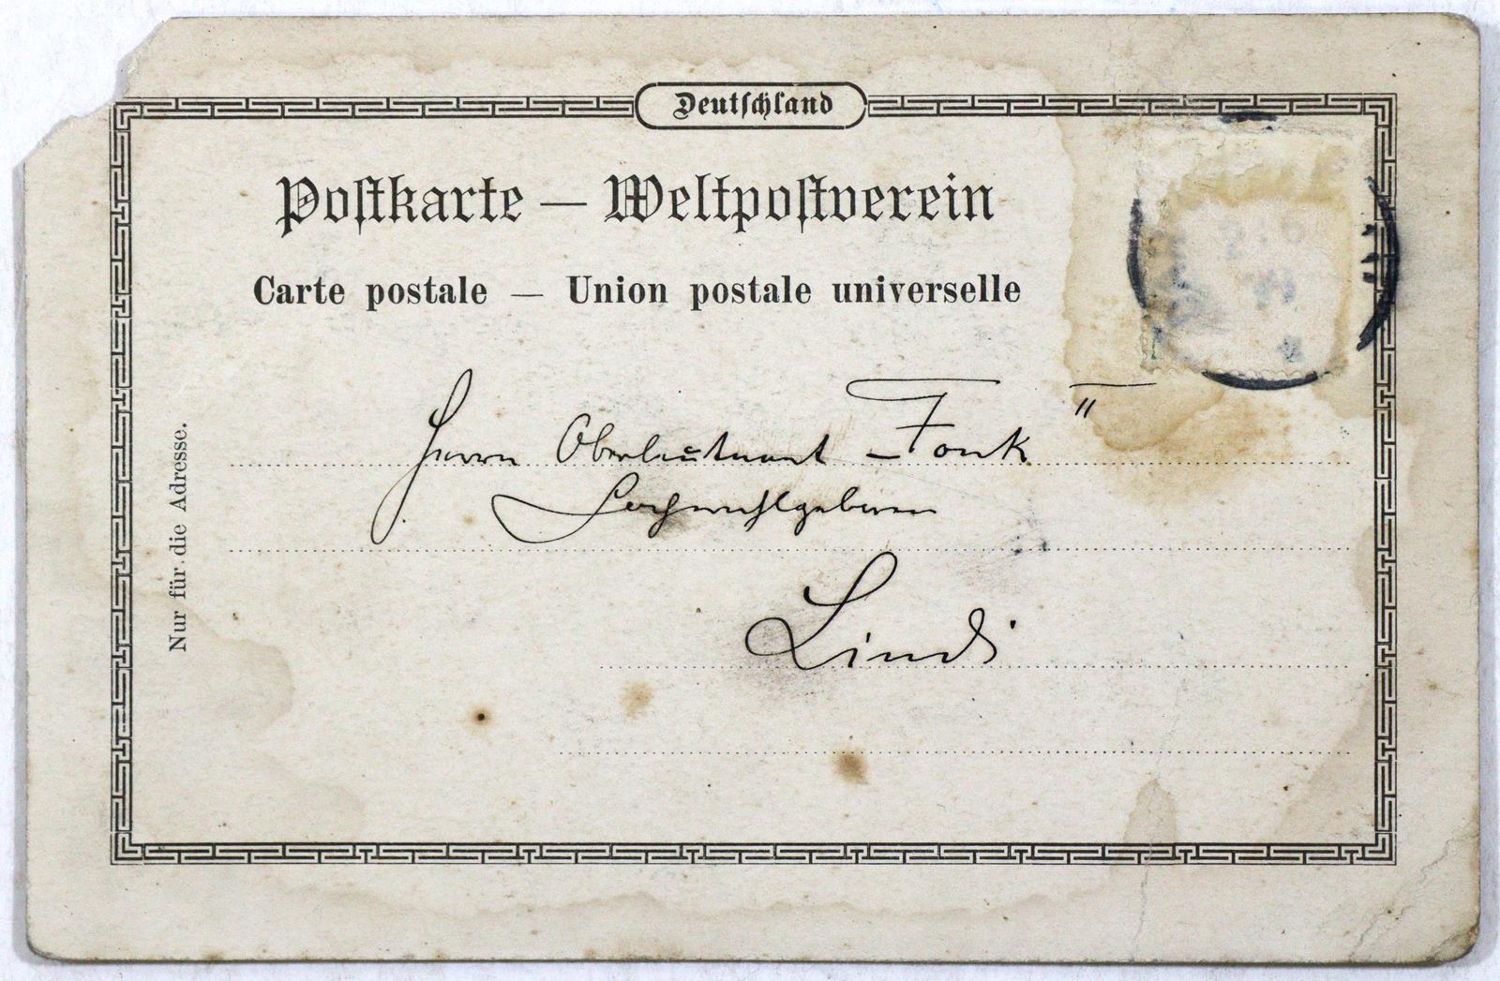 Deutschland
Postkarte — Weltpostverein
Carte postale — Union postale universelle
Nur für die Adresse.
Herrn Oberleutnant Fonk II
Hochwohlgeboren
Lindi